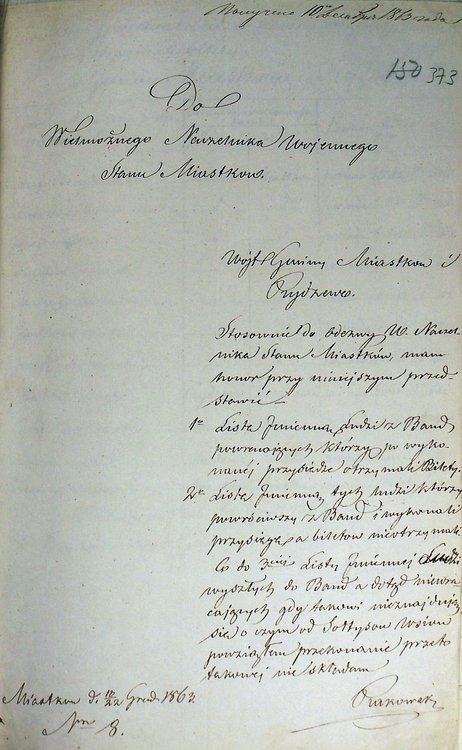 Получено 10 Декабря 1863 года
150 373
Do
Wielmożnego Naczelnika Wojennego
Stanu Miastków.
Wójt Gminy Miastków i
Ryzewo.
Stosownie do odezwy W. Naczel-
nika Stanu Miastków, mam
honor przy niniejszym przed-
stawić
1º Lista Imienna Ludzi z Band
powracających którzy po wyko-
nanej przysiędze otrzymali Bilety.
2º Lista Imienna tych ludzi którzy
powróciwszy z Band i wykonali
przysięgę a biletow nieotrzymali
Co do Listy Imiennej Ludzi
wyszłych do Band a dotąd niewra
cających gdy takowi nieznajdują
się o czym od Sołtysow Wsiow
powziąłem przekonanie przeto
takowej nie składam
Miastków d. 10/22 Grud. 1863.
Nro 8.
Rakowski